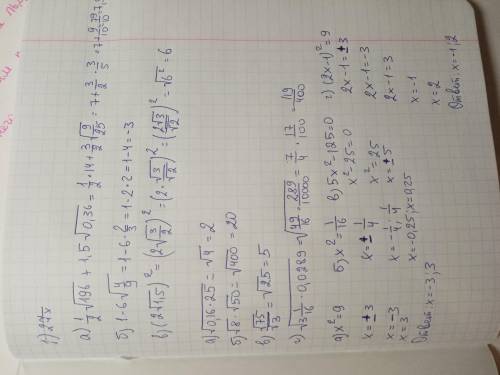 а) 1/2 √196 + 1,5 √0,36 = 1/2 · 14 + 3/2 √9/25 = 7 + 3/2 · 3/5 = 7 + 9/10
б) 1 - 6 √4/9 = 1 - 6 · 2/3 = 1 - 2 · 2 = 1 - 4 = -3
в) (2√1,5)² = (2√3/2)² = (2 · √3/√2)² = (2√3/√2)² = √6² = 6
а) √0,16 · 25 = √4 = 2
б) √8 · √50 = √400 = 20
в) √75/√3 = √25 = 5
г) √3 1/16 · 0,0289 = √49/16 · 289/10000 = 7/4 · 17/100 = 119/400
а) x² = 9
x = ±3
x = -3
x = 3
Ответ: x = -3; 3
б) x² = 1/16
x = ±1/4
x = -1/4; 1/4
x = -0,25; x = 0,25
в) 5x² - 125 = 0
x² - 25 = 0
x² = 25
x = ±5
г) (2x-1)² = 9
2x-1 = ±3
2x-1 = -3
2x-1 = 3
x = -1
x = 2
Ответ: x = -1; 2